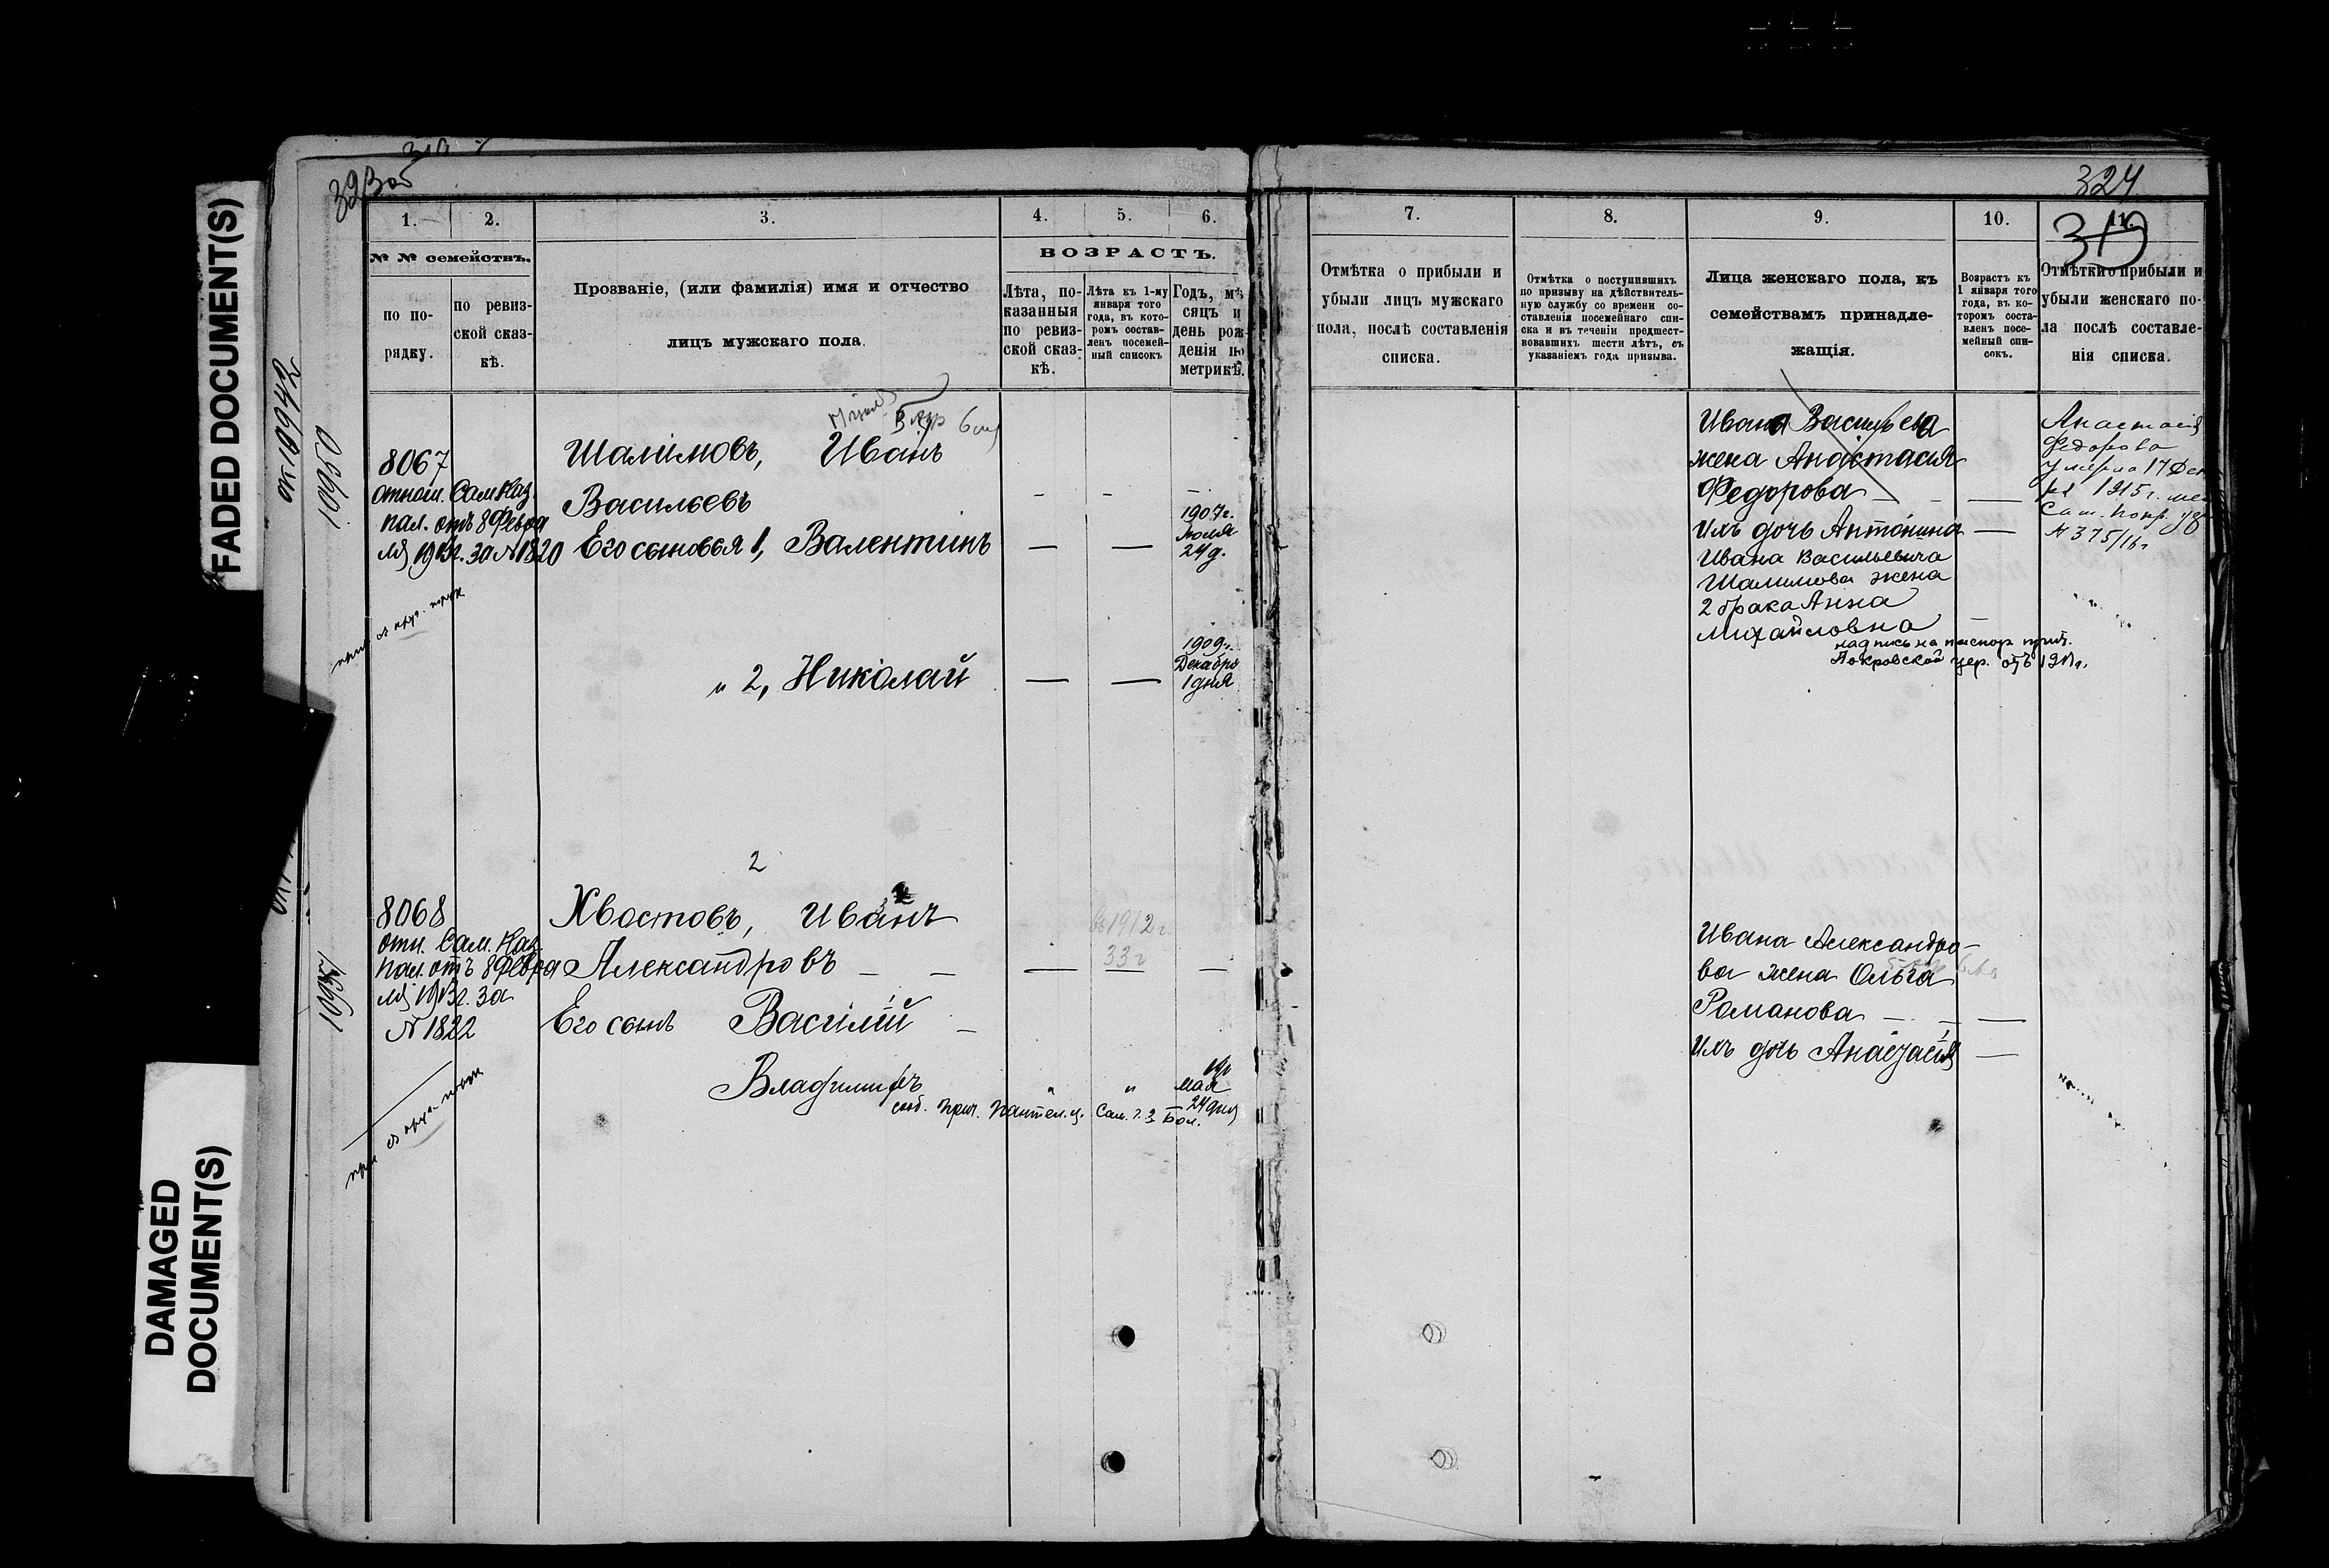 FADED DOCUMENT(S)
DAMAGED DOCUMENT(S)
323 об
324
319
10942
10950
10951
1.
2.
3.
4.
5.
6.
№ № семействъ.
по по-
рядку.
по ревиз-
ской сказ-
кѣ.
Прозваніе, (или фамилія) имя и отчество
лицъ мужскаго пола.
ВОЗРАСТЪ.
Лѣта, по-
казанныя
по ревиз-
ской сказ-
кѣ.
Лѣта къ 1-му
января того
года, въ кото-
ромъ состав-
ленъ посемей-
ный списокъ
Годъ, мѣ
сяцъ и
день рож
денія по
метрикѣ.
8067
отнош. Сам. Каз.
пал. отъ 8 Февра
ля 1913 г. за № 1820
Шалимовъ, Иванъ
Васильевъ
Его сыновья 1, Валентинъ
1907 г.
Июля
24 д.
" 2, Николай
1909 г.
Декабря
1 дня
2
8068
отн. Сам. Каз.
пал. отъ 8 Февра
ля 1913 г. за
№ 1822
Хвостовъ, Иванъ
Александровъ
въ 1912 г
33 г
Его сынъ Василій
Владимиръ " "
мая
24 дня
7.
8.
9.
10.
11.
Отмѣтка о прибыли и
убыли лицъ мужскаго
пола, послѣ составленія
списка.
Отмѣтка о поступившихъ
по призыву на дѣйствитель-
ную службу со времени со-
ставленія посемейнаго спи-
ска и въ теченіи предшест-
вовавшихъ шести лѣтъ, съ
указаніемъ года призыва.
Лица женскаго пола, къ
семействамъ принадле-
жащія.
Возрастъ къ
1 января того
года, въ ко-
торомъ соста-
вленъ посе-
мейный спи-
сокъ.
Отмѣтки о прибыли и
убыли женскаго по-
ла послѣ составле-
нія списка.
Ивана Васильева
жена Анастасия
Федорова
Ихъ дочь Антонина
Ивана Васильевича
Шалимова жена
2 брака Анна
Михайловна
надпись на паспор. прич.
Покровской цер.
Анастасія
Федорова
умерла 17 Дек
1915 г.
№ 375/16 г
Ивана Александро-
ва жена Ольга
Романова
Ихъ дочь Анастасія